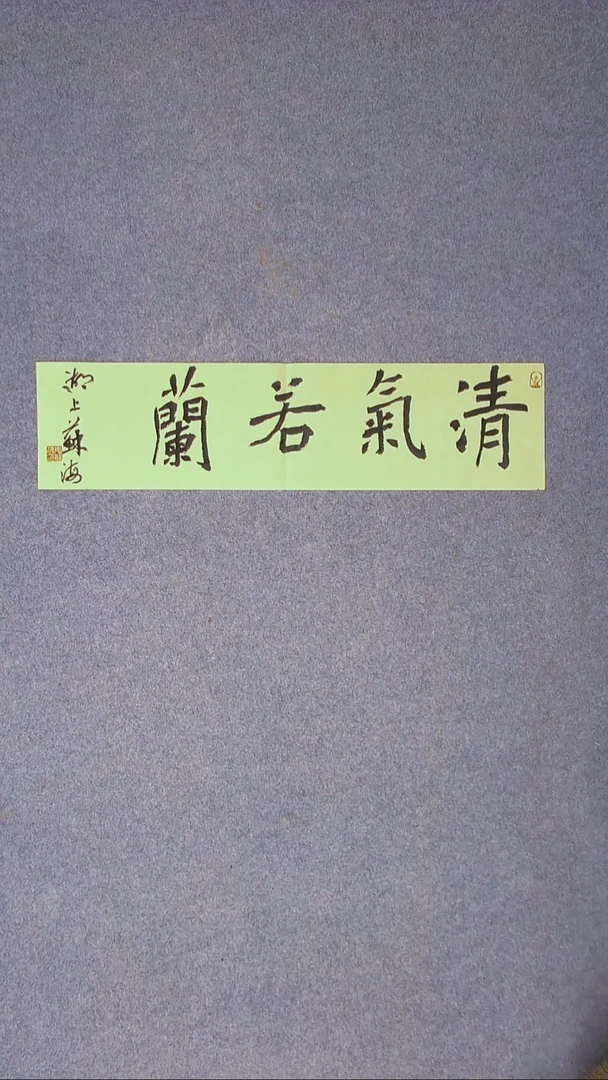 清氣若蘭
湖上蘇海